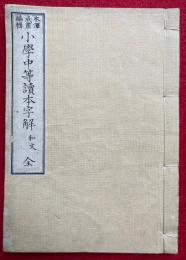 水澤
成憲
編輯
小學中等讀本字解 和文 全